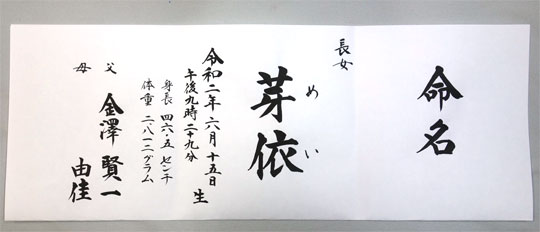 命名
長女
芽依
めい
令和二年六月十五日
午後九時二十九分
生
身長 四六・五センチ
体重 二八一二グラム
父 金澤 賢一
母 由佳